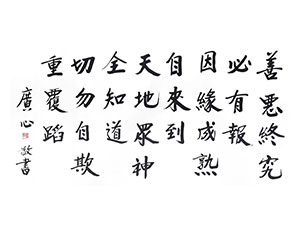 善惡終究
必有報
因緣成熟
自來到
天地眾神
全知道
切勿自欺
重覆蹈
廣心敬書